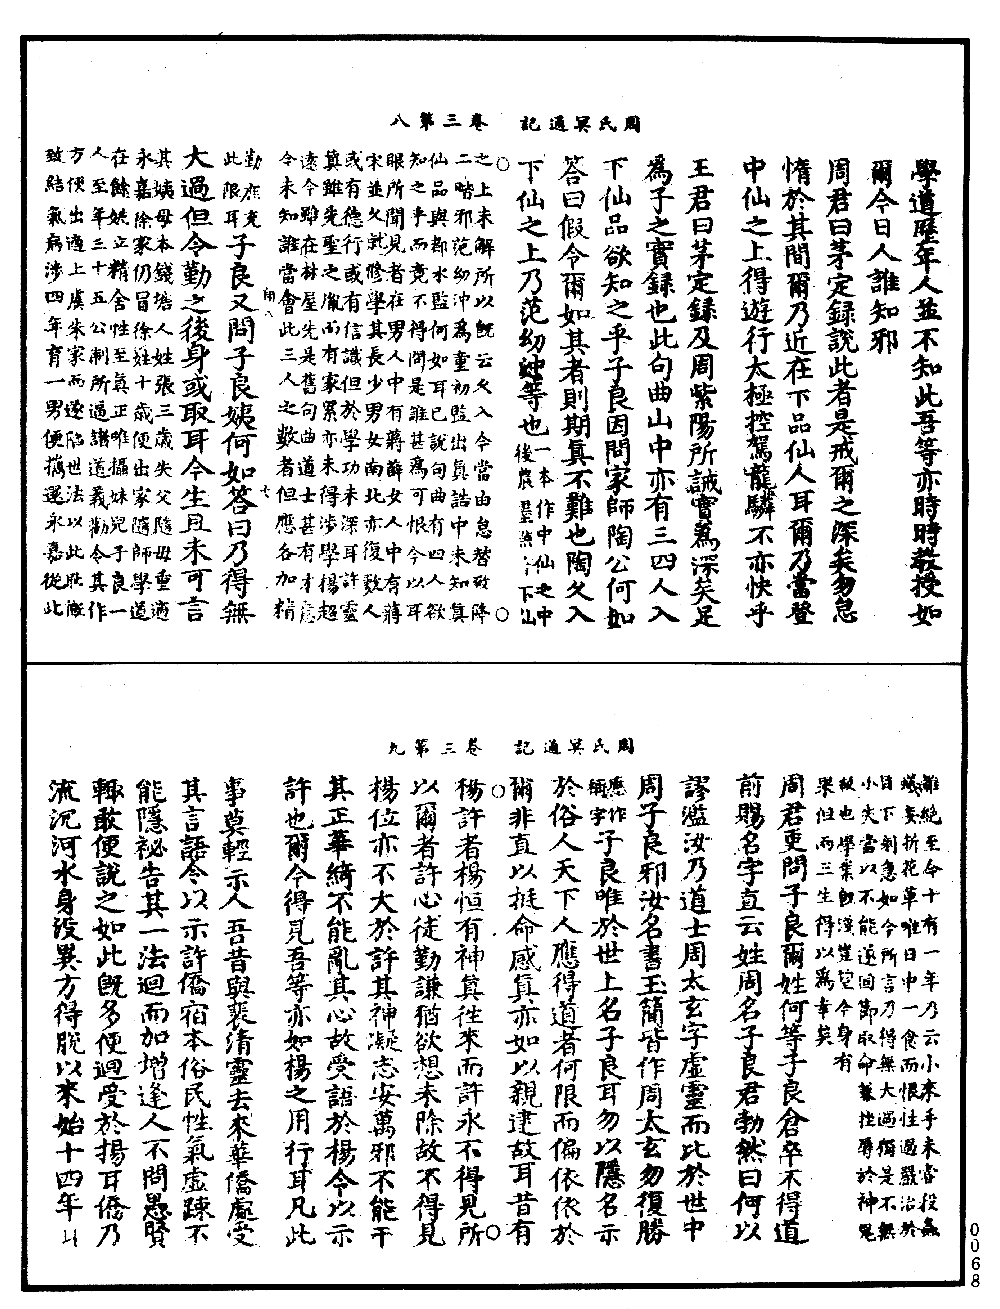 周氏冥通記　卷三第八
學道歷年人並不知此吾等亦時時教授如
爾今日人誰知邪
周君曰茅定錄說此者是戒爾之深矣勿怠
惰於其間爾乃近在下品仙人耳爾乃當登
中仙之上得遊行太極控駕龍驎不亦快乎
王君曰茅定錄及周紫陽所誡實為深矣足
為子之寶錄也此句曲山中亦有三四人入
下仙品欲知之乎子良因問家師陶公何如
答曰假令爾如其者則期真不難也陶久入
下仙之上乃范幼沖等也一本作中仙之中
後農墨 下仙
之上未解所以既云久入今當由怠替致降
二階邪范幼沖為童初監出真誥中未知真
仙品與都水監何如耳已說句曲有四人欲
知之乎而竟不得問是誰甚為可恨今以耳
眼所聞見者在男人中有蔣薛女人中有蔣
宋並久就修學其長少男女南北亦復數人
或有德行或有信識但於學功未深耳許靈
真雖凳聖之胤而有家累亦未得涉學楊超
遠今雖在林屋先是舊句曲道士甚有才意
今未知誰當會此三人之數者但應各加精
勤庶免
此限耳子良又問子良姨何如答曰乃得無
大過但令勤之後身或取耳今生且未可言
其姨母本錢塘人姓張三歲失父隨母重適
永嘉徐家仍冒徐姓十歲便出家隨師學道
在餘姚立精舍性至真正唯攝妹兒子良一
人至年三十五公制所逼講道義勸令其作
方便出適上虞朱家而遂陷世法以此耻慨
致結氣病涉四年育一男便攜還永嘉從此
周氏冥通記　卷三第九
離絕至今十有一年乃云小來手未嘗投蝨
蟻妄折花草唯日中一食而恨性過嚴治於
目下刺急如今所言乃得無大過猶是不無
小失當以不能遂固節取命兼挫辱於神鬼
故也學業既淺豈望今身有
果但兩三生得以為幸矣
周君更問子良爾姓何等子良倉卒不得道
前賜名字直云姓周名子良君勃然曰何以
謬濫汝乃道士周太玄字虛靈而比於世中
周子良邪汝名書玉簡皆作周太玄勿復勝
應作
稱字子良唯於世上名子良耳勿以隱名示
於俗人天下人應得道者何限而偏依依於
爾非直以挺命感真亦如以親逮故耳昔有
楊許者楊恒有神真往來而許永不得見所
以爾者許心徒勤謙猶欲想未除故不得見
楊位亦不大於許其神凝志安萬邪不能干
其正華綺不能亂其心故受語於楊令以示
許也爾今得見吾等亦如楊之用行耳凡此
事莫輕示人吾昔與裴清靈去來華僑處受
其言語令以示許僑宿本俗民性氣虛疎不
能隱祕告其一法迴而加增逢人不問愚賢
輙敢便說之如此既多便迴受於揚耳僑乃
流沉河水身沒異方得脫以來始十四年
0068